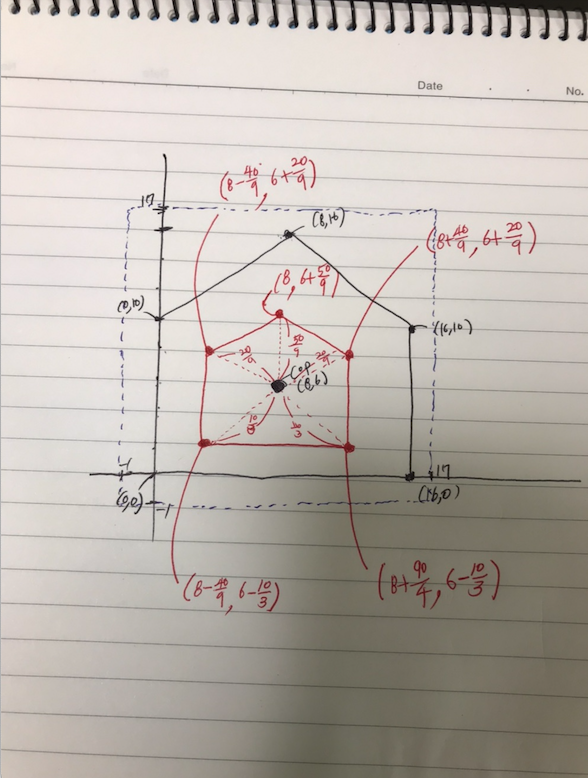 Date . . No.
(8-40/9, 6+20/9)
17
(8,16)
(8+40/9, 6+20/9)
(8, 6+50/9)
(0,10)
(16,10)
50/9
20/9
20/9
Cop
(8,6)
10/3
-1
17
(0,0)
(16,0)
-1
(8-40/9, 6-10/3)
(8+90/4, 6-10/3)